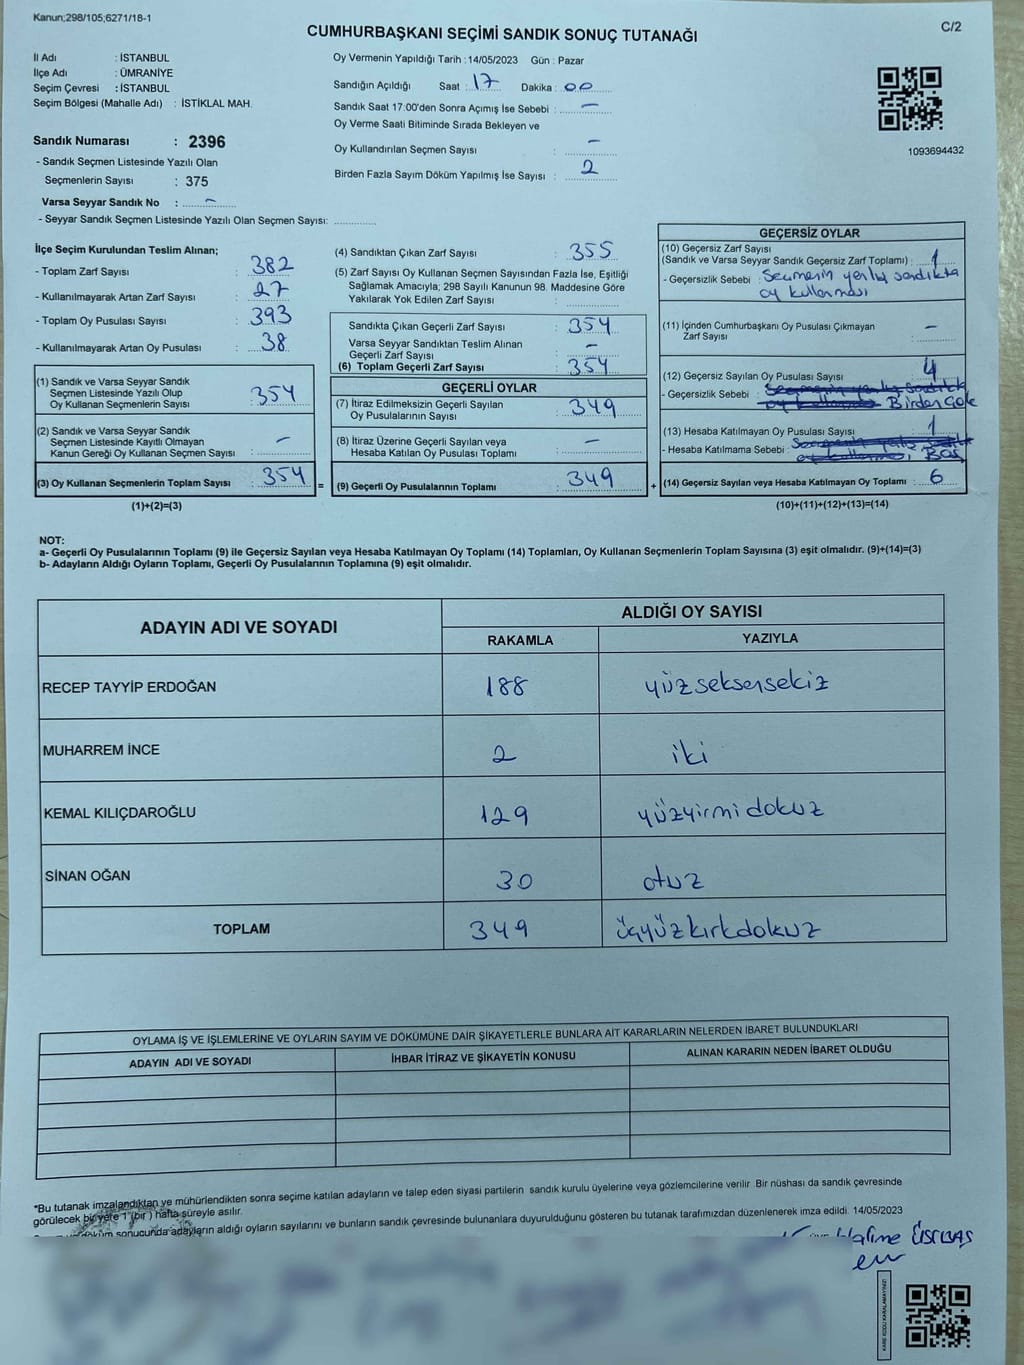 Kanun;298/105;6271/18-1
C/2
CUMHURBAŞKANI SEÇİMİ SANDIK SONUÇ TUTANAĞI
İl Adı : İSTANBUL
İlçe Adı : ÜMRANİYE
Seçim Çevresi : İSTANBUL
Seçim Bölgesi (Mahalle Adı) : İSTİKLAL MAH.
Sandık Numarası : 2396
- Sandık Seçmen Listesinde Yazılı Olan
Seçmenlerin Sayısı : 375
Varsa Seyyar Sandık No : -
- Seyyar Sandık Seçmen Listesinde Yazılı Olan Seçmen Sayısı:
Oy Vermenin Yapıldığı Tarih : 14/05/2023 Gün : Pazar
Sandığın Açıldığı Saat : 17 Dakika : 00
Sandık Saat 17:00'den Sonra Açımış İse Sebebi : -
Oy Verme Saati Bitiminde Sırada Bekleyen ve
Oy Kullandırılan Seçmen Sayısı : -
Birden Fazla Sayım Döküm Yapılmış İse Sayısı : 2
1093694432
İlçe Seçim Kurulundan Teslim Alınan;
- Toplam Zarf Sayısı : 382
- Kullanılmayarak Artan Zarf Sayısı : 27
- Toplam Oy Pusulası Sayısı : 393
- Kullanılmayarak Artan Oy Pusulası : 38
(1) Sandık ve Varsa Seyyar Sandık
Seçmen Listesinde Yazılı Olup
Oy Kullanan Seçmenlerin Sayısı : 354
(2) Sandık ve Varsa Seyyar Sandık
Seçmen Listesinde Kayıtlı Olmayan
Kanun Gereği Oy Kullanan Seçmen Sayısı : -
(3) Oy Kullanan Seçmenlerin Toplam Sayısı : 354 =
(1)+(2)=(3)
(4) Sandıktan Çıkan Zarf Sayısı : 355
(5) Zarf Sayısı Oy Kullanan Seçmen Sayısından Fazla İse, Eşitliği
Sağlamak Amacıyla; 298 Sayılı Kanunun 98. Maddesine Göre
Yakılarak Yok Edilen Zarf Sayısı :
Sandıkta Çıkan Geçerli Zarf Sayısı : 354
Varsa Seyyar Sandıktan Teslim Alınan
Geçerli Zarf Sayısı : -
(6) Toplam Geçerli Zarf Sayısı : 354
GEÇERLİ OYLAR
(7) İtiraz Edilmeksizin Geçerli Sayılan
Oy Pusulalarının Sayısı : 349
(8) İtiraz Üzerine Geçerli Sayılan veya
Hesaba Katılan Oy Pusulası Toplamı : -
(9) Geçerli Oy Pusulalarının Toplamı : 349 +
GEÇERSİZ OYLAR
(10) Geçersiz Zarf Sayısı
(Sandık ve Varsa Seyyar Sandık Geçersiz Zarf Toplamı) : 1
- Geçersizlik Sebebi : Seçmenin yanlış sandıkta
oy kullanması
(11) İçinden Cumhurbaşkanı Oy Pusulası Çıkmayan
Zarf Sayısı : -
(12) Geçersiz Sayılan Oy Pusulası Sayısı : 4
- Geçersizlik Sebebi : Birden Çok
(13) Hesaba Katılmayan Oy Pusulası Sayısı : 1
- Hesaba Katılmama Sebebi : Boş
(14) Geçersiz Sayılan veya Hesaba Katılmayan Oy Toplamı : 6
(10)+(11)+(12)+(13)=(14)
NOT:
a- Geçerli Oy Pusulalarının Toplamı (9) ile Geçersiz Sayılan veya Hesaba Katılmayan Oy Toplamı (14) Toplamları, Oy Kullanan Seçmenlerin Toplam Sayısına (3) eşit olmalıdır. (9)+(14)=(3)
b- Adayların Aldığı Oyların Toplamı, Geçerli Oy Pusulalarının Toplamına (9) eşit olmalıdır.
ADAYIN ADI VE SOYADI
ALDIĞI OY SAYISI
RAKAMLA YAZIYLA
RECEP TAYYİP ERDOĞAN 188 yüzseksensekiz
MUHARREM İNCE 2 iki
KEMAL KILIÇDAROĞLU 129 yüzyirmidokuz
SİNAN OĞAN 30 otuz
TOPLAM 349 üçyüzkırkdokuz
OYLAMA İŞ VE İŞLEMLERİNE VE OYLARIN SAYIM VE DÖKÜMÜNE DAİR ŞİKAYETLERLE BUNLARA AİT KARARLARIN NELERDEN İBARET BULUNDUKLARI
ADAYIN ADI VE SOYADI İHBAR İTİRAZ VE ŞİKAYETİN KONUSU ALINAN KARARIN NEDEN İBARET OLDUĞU
*Bu tutanak imzalandıktan ve mühürlendikten sonra seçime katılan adayların ve talep eden siyasi partilerin sandık kurulu üyelerine veya gözlemcilerine verilir .Bir nüshası da sandık çevresinde
görülecek bir yere 1 (bir ) hafta süreyle asılır.
döküm sonucunda adayların aldığı oyların sayılarını ve bunların sandık çevresinde bulunanlara duyurulduğunu gösteren bu tutanak tarafımızdan düzenlenerek imza edildi. 14/05/2023
Halime
KARE KODU KARALAMAYINIZ!